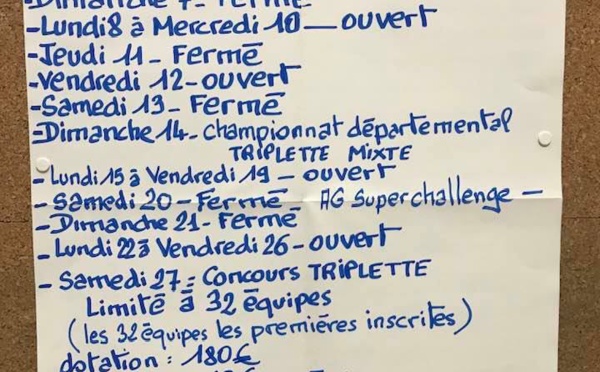 -Dimanche 7- Fermé
-Lundi 8 à Mercredi 10 — ouvert
-Jeudi 11 - Fermé
-Vendredi 12-ouvert
-Samedi 13- Fermé
-Dimanche 14- championnat départemental
TRIPLETTE MIXTE
- Lundi 15 à Vendredi 19 - ouvert
- Samedi 20 - Fermé AG Superchallenge -
- Dimanche 21- Fermé
- Lundi 22 à Vendredi 26 - ouvert
- Samedi 27 : Concours TRIPLETTE
Limité à 32 équipes
(les 32 équipes les premières inscrites)
dotation : 180€